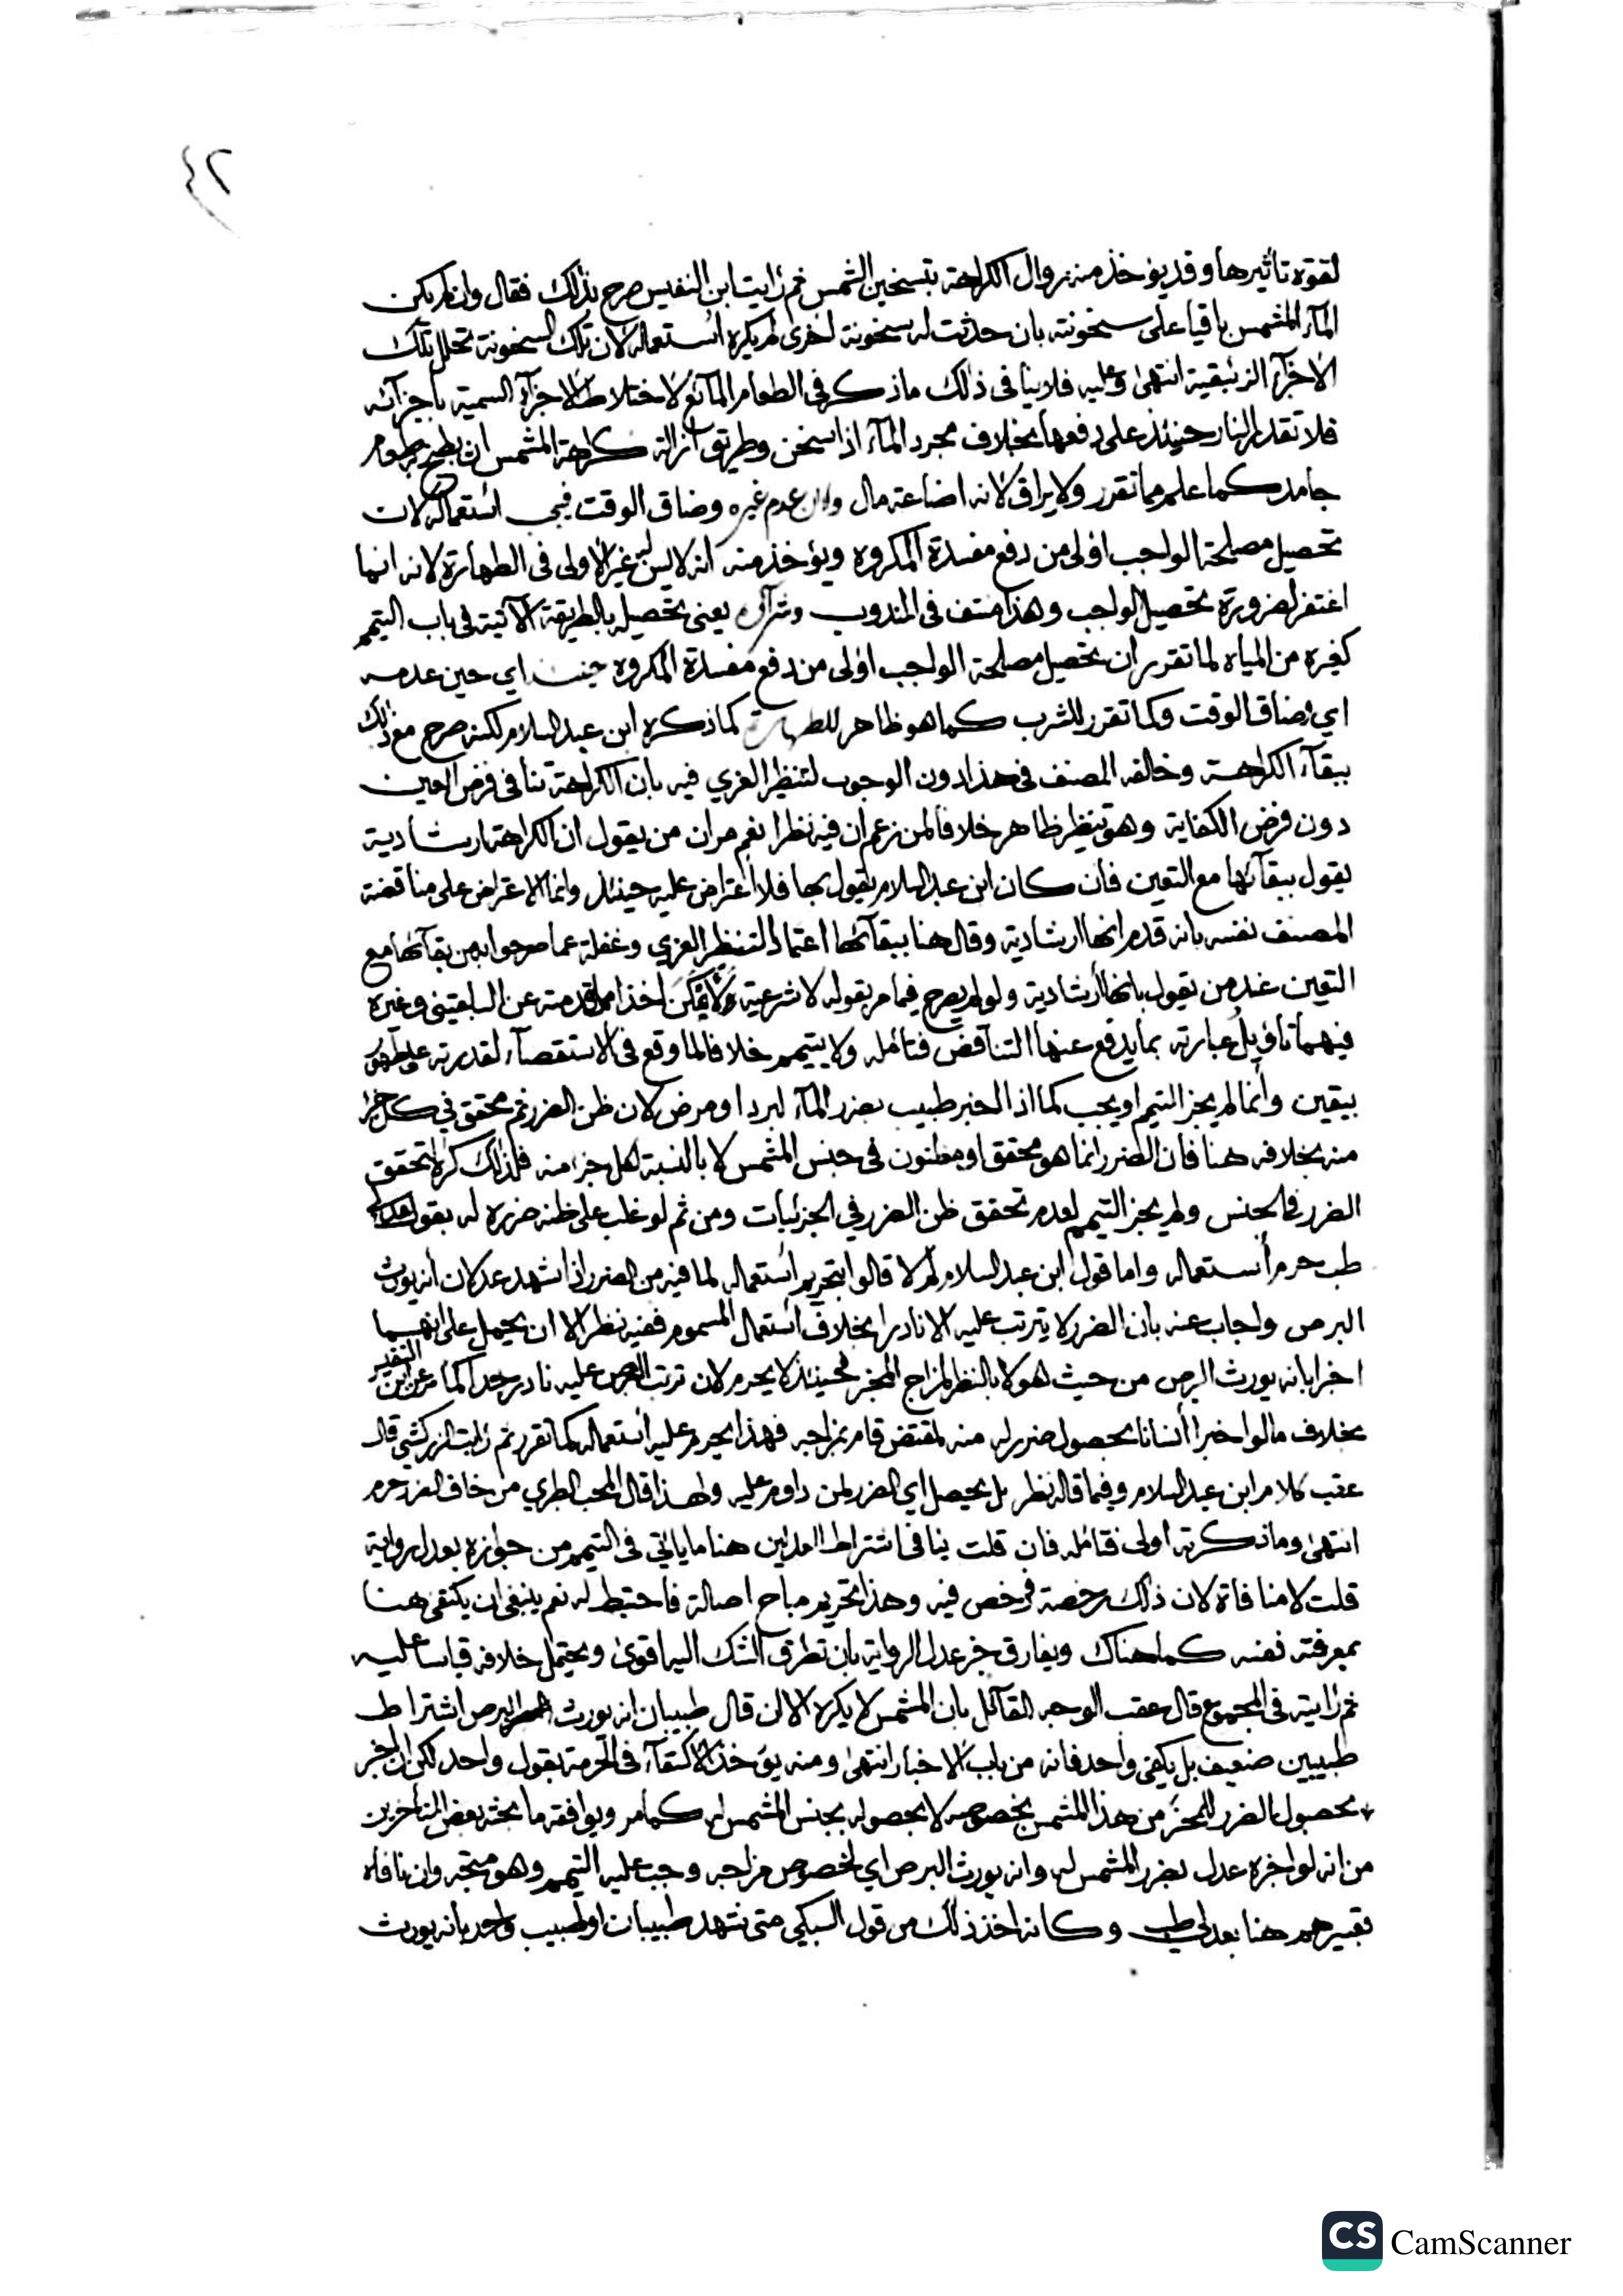 ٤٢
لقوة تأثيرها وقد يؤخذ منه زوال الكراهة بتسخين الشمس ثم رأيت ابن النفيس صرح بذلك فقال وان لم يكن
الماء المشمس باقيا على سخونته بان حدثت له سخونة اخرى لم يكره استعماله لان تلك السخونة تحلل تلك
الاجزاء الزئبقية انتهى وعليه فلا ينافى ذلك ماذكر فى الطعام المائع لاختلاط الاجزاء السمية باجزائه
فلا تقدر النار حينئذ على دفعها بخلاف مجرد الماء اذا سخن وطريق ازالة كراهة المشمس ان يطبخ به طعام
جامد كما علم مما تقرر ولا يراق لانه اضاعة مال وان عدم غيره وضاق الوقت فيجب استعماله لان
تحصيل مصلحة الواجب اولى من دفع مفسدة المكروه ويؤخذ منه انه لا يسن غير الاولى فى الطهارة لانه انما
اغتفر لضرورة تحصيل الواجب وهذا منتف فى المندوب وشراؤه يعنى تحصيله بالطريقة الآتية فى باب التيمم
كغيره من المياه لما تقرر ان تحصيل مصلحة الواجب اولى من دفع مفسدة المكروه حينئذ اي حين عدمه
اي وضاق الوقت وكما تقرر للشرب كما هو ظاهر للطهارة كما ذكره ابن عبد السلام لكنه صرح مع ذلك
ببقاء الكراهة وخالفه المصنف فى هذا دون الوجوب لتنظير الغزي فيه بان الكراهة تنافى فرض العين
دون فرض الكفاية وهو تنظير ظاهر خلافا لمن زعم ان فيه نظرا نعم مر ان من يقول ان الكراهة ارشادية
يقول ببقائها مع التعين فان كان ابن عبد السلام يقول بها فلا اعتراض عليه حينئذ وانما الاعتراض على مناقضة
المصنف نفسه بانه قدم انها ارشادية وقال هنا ببقائها اعتمادا لتنظير الغزي وغفلة عما صرحوا به من بقائها مع
التعين عند من يقول بانها ارشادية ولو لم يصرح فيما مر بقوله لا شرعية لامكن اخذا مما قدمته عن البلقينى وغيره
فيهما تاويل عبارته بما يدفع عنها التناقض فتامله ولا يتيمم خلافا لما وقع فى الاستقصاء لقدرته على طهور
بيقين وانما لم يجز التيمم او يجب كما اذا اخبر طبيب بضرر الماء لبرد او مرض لان ظن الضرر ثم محقق في كل جزء
منه بخلافه هنا فان الضرر انما هو محقق او مظنون فى جنس المشمس لا بالنسبة لكل جزء منه فلذلك كره لتحقق
الضرر فى الجنس ولم يجز التيمم لعدم تحقق ظن الضرر في الجزئيات ومن ثم لو غلب على ظنه ضرره له بقول عدلي
طب حرم استعماله واما قول ابن عبد السلام لم لا قالوا بتحريم استعماله لما فيه من الضرر اذا شهد عدلان انه يورث
البرص واجاب عنه بان الضرر لا يترتب عليه الا نادرا بخلاف استعمال المسموم ففيه نظر الا ان يحمل على انهما
اخبرا بانه يورث البرص من حيث هو لا بالنظر لمزاج المخبر فحينئذ لا يحرم لان ترتب البرص عليه نادر جدا كما مر عن ابن النفيس
بخلاف ما لو اخبرا انسانا بحصول ضرر له منه لمقتض قام بمزاجه فهذا يحرم عليه استعماله كما تقرر ثم رايت الزركشي قال
عقب كلام ابن عبد السلام وفيما قاله نظر بل يحصل اي الضرر لمن داوم عليه ولهذا قال المحب الطبري من خاف الضرر حرم
انتهى وما ذكرته اولى فتامله فان قلت ينافى اشتراط العدلين هنا ما ياتي فى التيمم من جوازه بعدل رواية
قلت لا منافاة لان ذلك رخصة فرخص فيه وهذا تحريم مباح اصالة فاحتيط له نعم ينبغى ان يكتفى هنا
بمعرفته نفسه كما هناك ويفارق خبر عدل الرواية بان تطرق الشك اليه اقوى ويحتمل خلافه قياسا عليه
ثم رايته فى المجموع قال عقب الوجه القائل بان المشمس لا يكره الا ان قال طبيبان انه يورث البرص اشتراط
طبيبين ضعيف بل يكفى واحد فانه من باب الاخبار انتهى ومنه يؤخذ الاكتفاء فى الحرمة بقول واحد لكن ان اخبر
بحصول الضرر للمخبر من هذا المشمس بخصوصه لا بحصوله بجنس المشمس له كما مر ويوافقه ما بحثه بعض المتاخرين
من انه لو اخبره عدل بضرر المشمس له وانه يورث البرص اي لخصوص مزاجه وجب عليه التيمم وهو متجه وان نافاه
تعبيرهم هنا بعدلي طب وكانه اخذ ذلك من قول السبكي متى شهد طبيبان او طبيب واحد بانه يورث
CS CamScanner